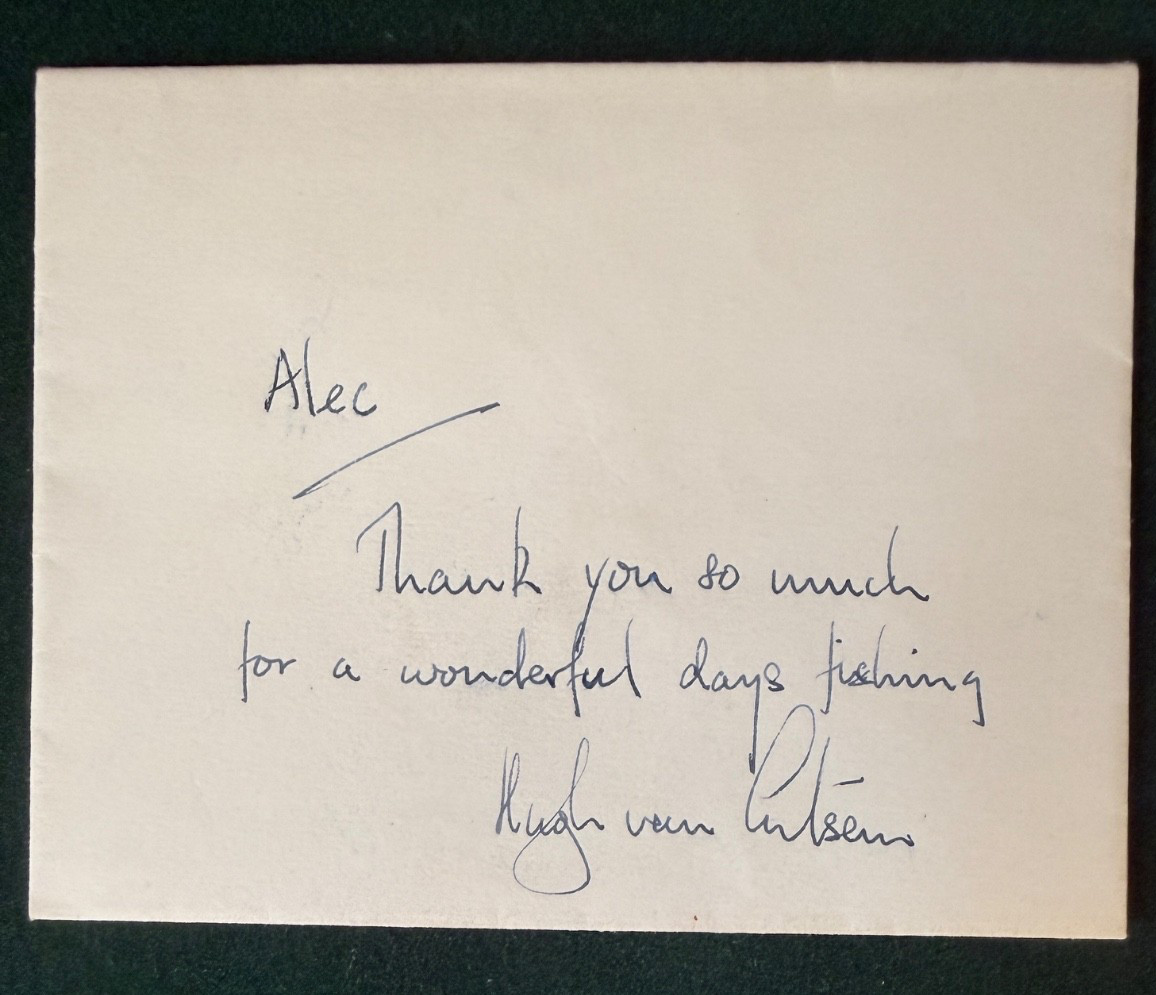 Alec
Thank you so much
for a wonderful days fishing
Hugh van Cutsem